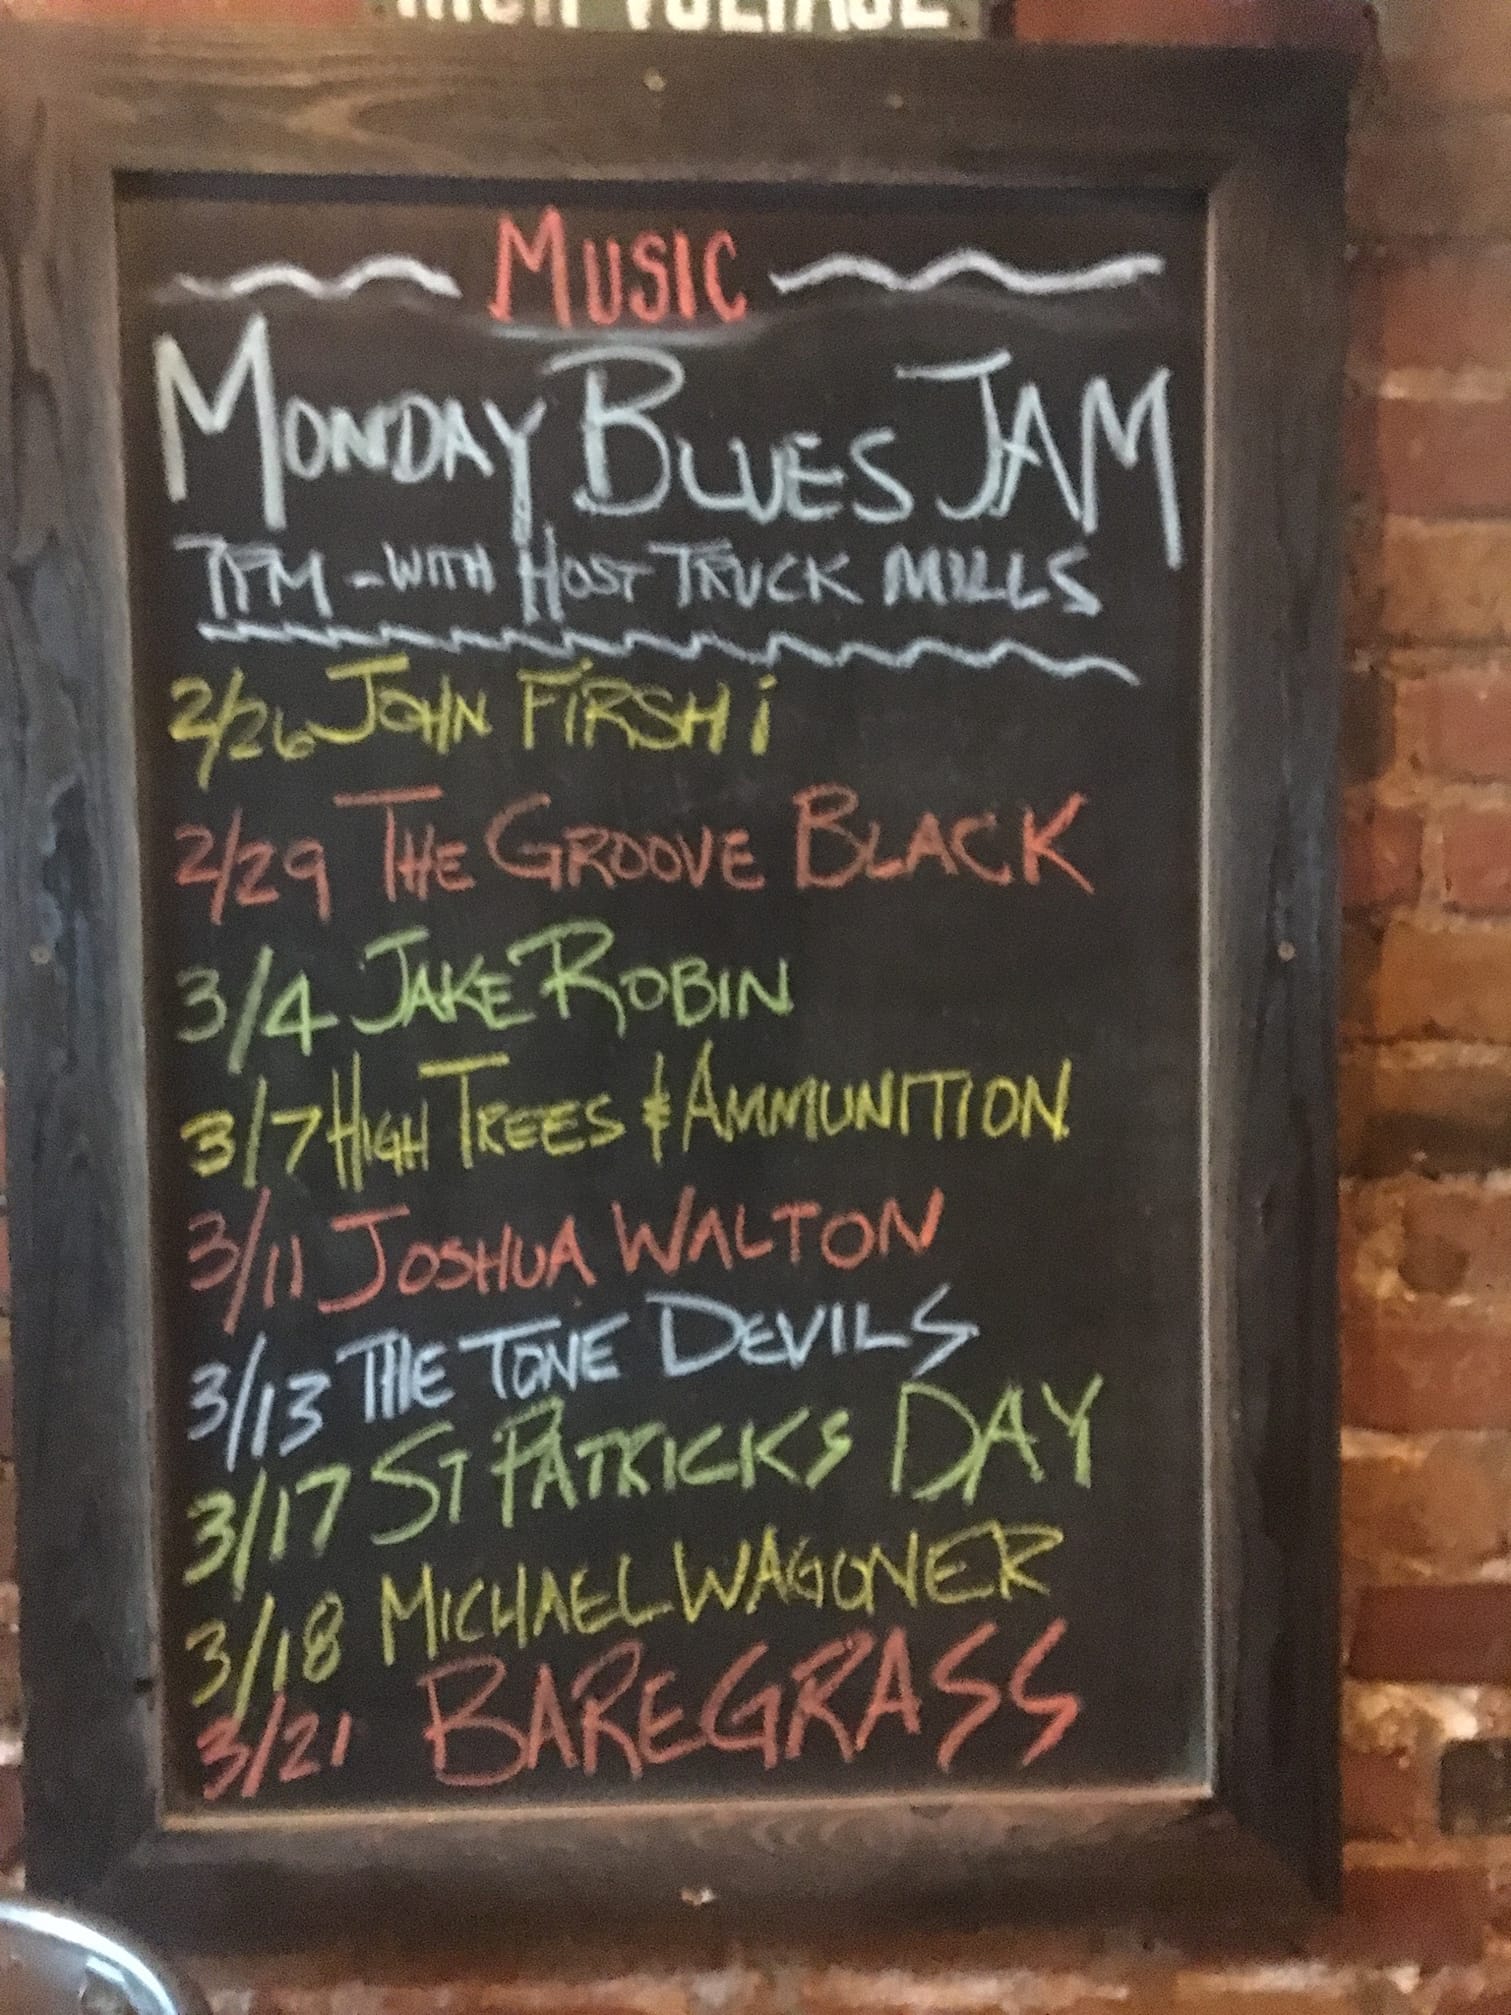 HIGH VOLTAGE
MUSIC
MONDAY BLUES JAM
7PM - WITH HOST TRUCK MILLS
2/26 JOHN FIRSHi
2/29 THE GROOVE BLACK
3/4 JAKE ROBIN
3/7 HIGH TREES & AMMUNITION
3/11 JOSHUA WALTON
3/13 THE TONE DEVILS
3/17 ST PATRICKS DAY
3/18 MICHAEL WAGONER
3/21 BAREGRASS